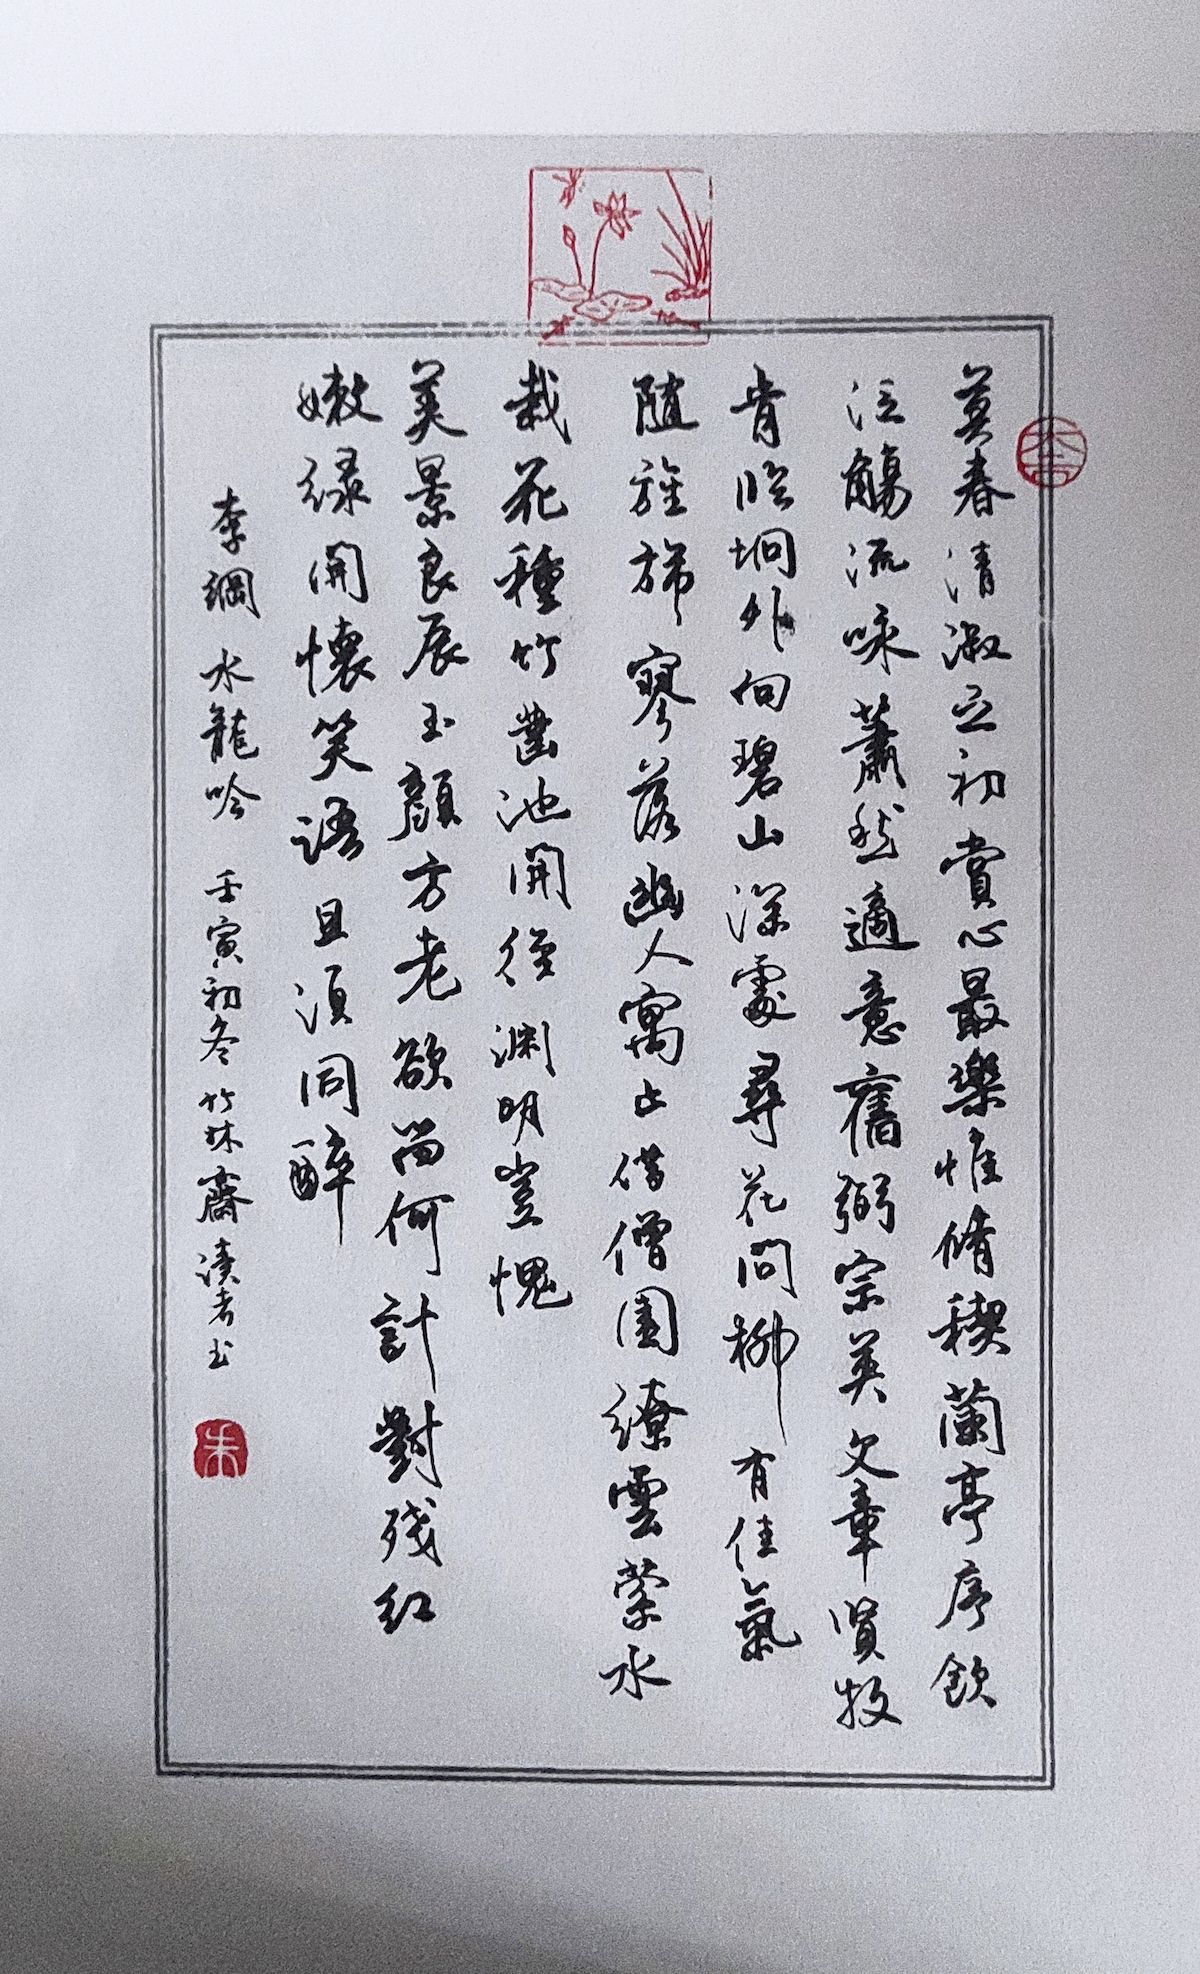 莫春清淑之初賞心最樂惟脩稧蘭亭序飲
泛觴流咏蕭然適意舊弼宗英文章賢牧
肯臨坰外向碧山深處尋花問柳有佳氣
隨旌旆寥落幽人寓止借僧園繚雲縈水
栽花種竹凿池開徑淵明豈愧
美景良辰玉顏方老欲留何計對残红
嫩緑開懷笑語且須同醉
李綱水龍吟壬寅初冬竹林齋读者书
朱